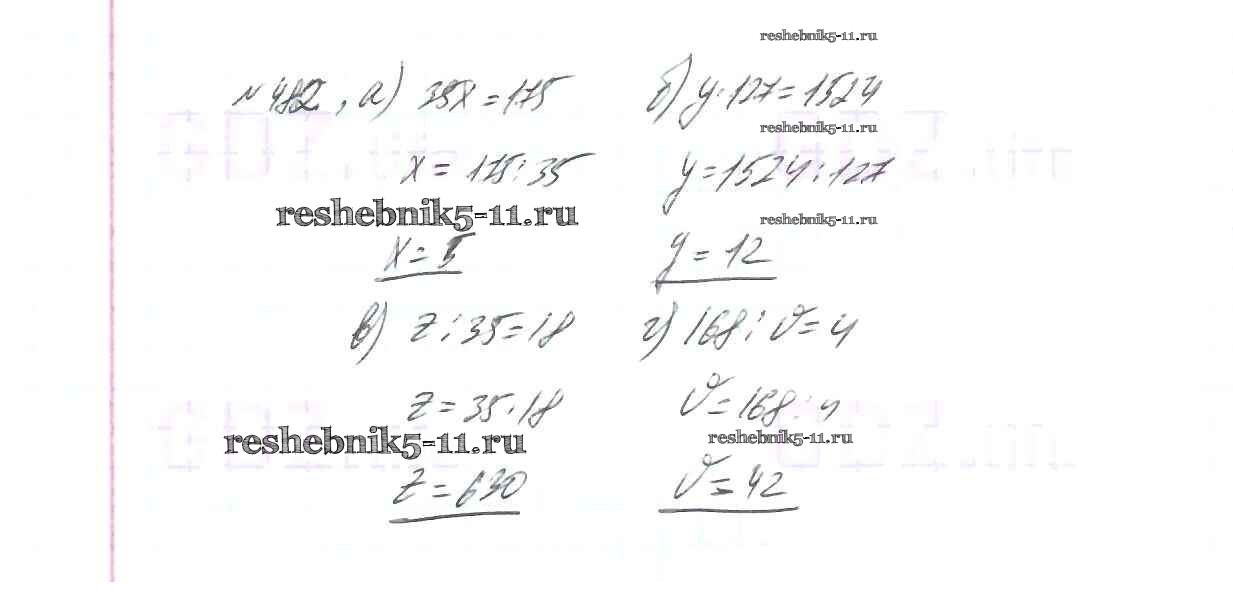 reshebnik5-11.ru
№ 482, а) 35x = 175 б) y · 127 = 1524
reshebnik5-11.ru
x = 175 : 35 y = 1524 : 127
reshebnik5-11.ru reshebnik5-11.ru
x = 5 y = 12
в) z : 35 = 18 г) 168 : v = 4
z = 35 · 18 v = 168 : 4
reshebnik5-11.ru reshebnik5-11.ru
z = 630 v = 42